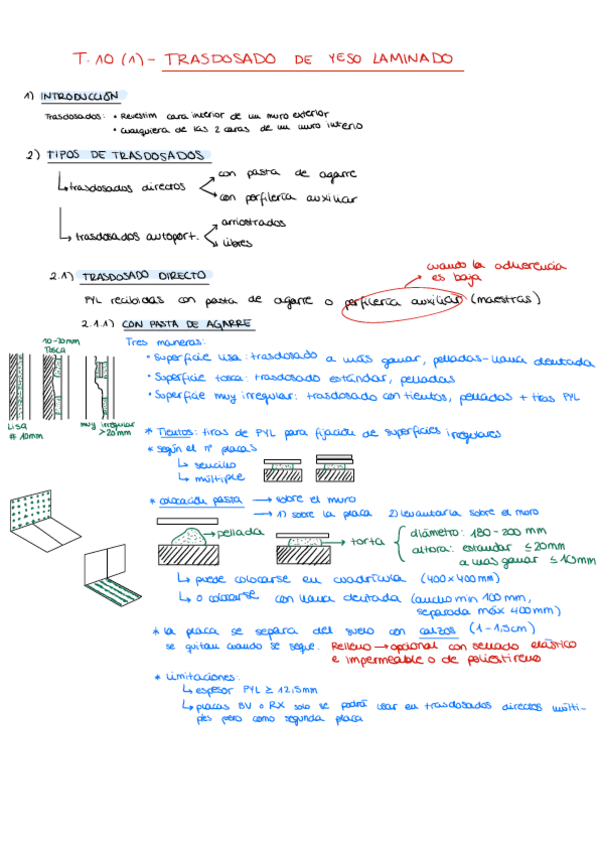 T.10 (1) - TRASDOSADO DE YESO LAMINADO
1) INTRODUCCIÓN
Trasdosados: • Revestim cara interior de un muro exterior
• cualquiera de las 2 caras de un muro interio
2) TIPOS DE TRASDOSADOS
trasdosados directos
con pasta de agarre
con perfilería auxiliar
trasdosados autoport.
arriostrados
libres
cuando la adherencia
es baja
2.1) TRASDOSADO DIRECTO
PYL recibidas con pasta de agarre o perfilería auxiliar (maestras)
2.1.1) CON PASTA DE AGARRE
10-20mm
Tosca
Lisa
≠ 10mm
muy irregular
>20mm
Tres maneras:
• Superficie lisa: trasdosado a más ganar, pelladas-llana dentada
• Superficie tosca: trasdosado estándar, pelladas
• Superficie muy irregular: trasdosado con tientos, pelladas + tiras PYL
* Tientos: tiras de PYL para fijación de superficies irregulares
* según el nº placas
sencillo
múltiple
* colocación pasta → sobre el muro
→ 1) sobre la placa 2) levantarla sobre el muro
pellada
torta
diámetro: 180-200 mm
altura: estandar ≤20mm
a mas ganar ≤10mm
puede colocarse en cuadrícula (400x400mm)
o colocarse con llana dentada (ancho min 100 mm,
separada máx 400mm)
* la placa se separa del suelo con calzos (1-1,5cm)
se quitan cuando se segue. Relleno → opcional con sellado elástico
e impermeable o de poliestireno
* Limitaciones:
espesor PYL ≥ 12,5mm
placas BV o RX solo se podrá usar en trasdosados directos múlti-
ples pero como segunda placa